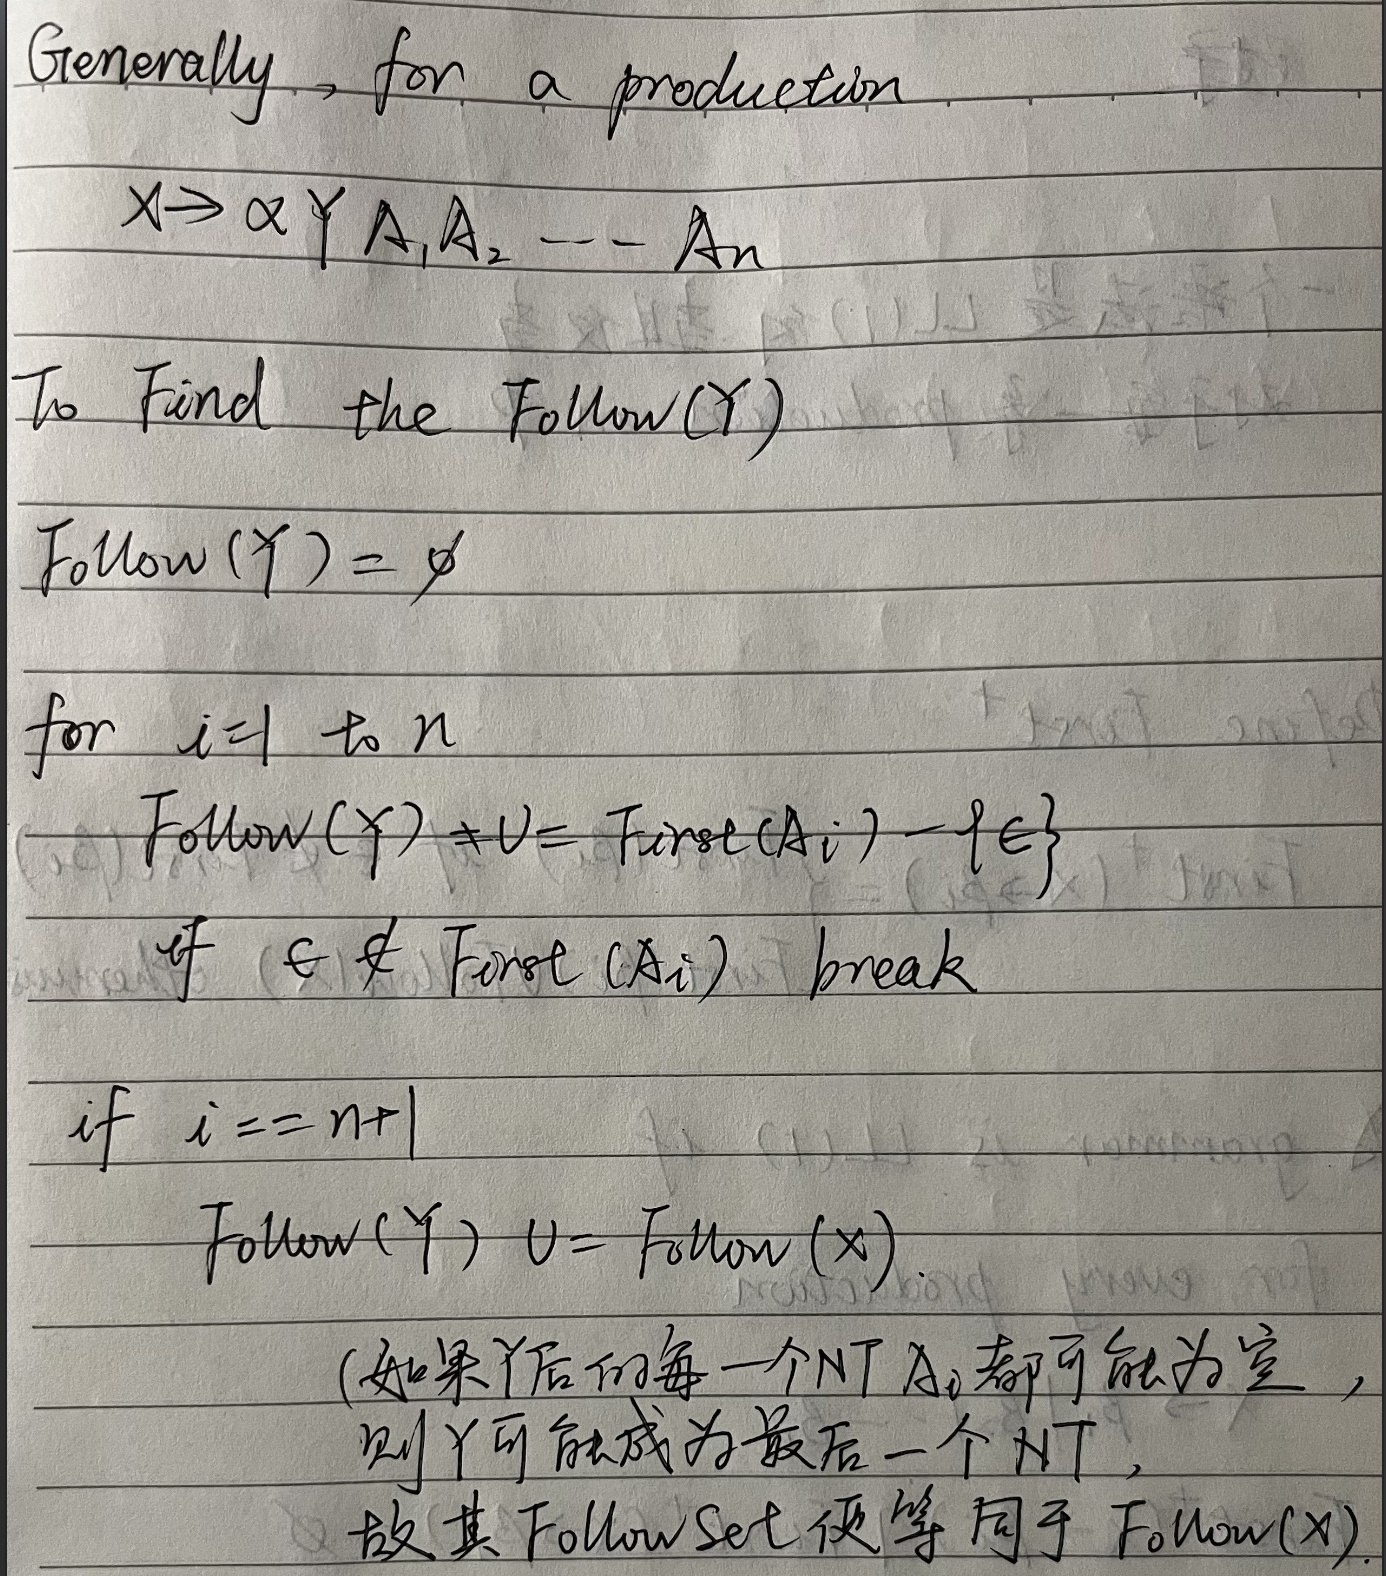 Generally, for a production
X → α Y A₁ A₂ --- An
To Find the Follow(Y)
Follow(Y) = ∅
for i=1 to n
Follow(Y) ∪= First(Ai) - {ϵ}
if ϵ ∉ First(Ai) break
if i == n+1
Follow(Y) ∪= Follow(X).
(如果Y后的每一个NT Ai都可能为空,
则Y可能成为最后一个NT,
故其Follow Set便等同于Follow(X).